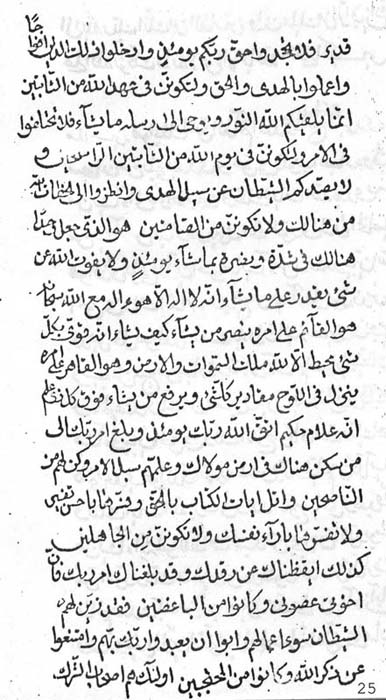 قدير فلا تحد واحق ربكم يومئذ وادخلوا في ملك الدين افواجا
واعملوا بالهدى والحق ولتكونن في عهد الله من الثابتين
انما يلقيكم الله النور ويوحى الى رسله ما يشآء فلا تختلفوا
في الامر ولتكونن في يوم الله من الثابتين الراسخين و
لا يصدكم الشيطان عن سبيل الهدى وانظروا الى
من هنالك ولا تكونن من القانتين هو الذي جعل
هنالك في شدة وينصره بما يشآء يومئذ ولا يفوت الله عن
شئ يقدر على ما يشآء انه لا اله الا هو عما له مع الله سبحانه
هو القآئم على امره ينصر من يشآء كيف يشآء انه فوق كل
شئ محيط الا لله ملك السموات والارض وهو القاهر على امره
ينزل في اللوح مقادير كل شئ ويرفع من يشآء فوق كل ذي علم
انه علام حكيم اتق الله ربك يومئذ وبلغ امر ربك الى
من سكن هناك في ارض مولاك وعليهم سبل الامر وكن لهم من
الناصحين واتل ايات الكتاب بالحق وفسرها باحسن تفسير
ولا تفسرها بارآء نفسك ولا تكونن من الجاهلين
كذلك ايقظناك عن رقدك وقد بلغناك امر ربك فان
اخوتى عصونى وكانوا من الباغضين فقد زين لهم
الشيطان سوء اعمالهم وابوا ان يعبدوا ربك ربهم وامتنعوا
عن ذكر الله وكانوا من المحتجبين اولئك هم اصحاب الترك
25